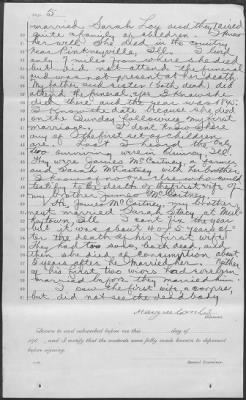 Page 5
married Sarah Loy and they raised
quite a family of children. I knew
her well. She died in the country
near Pinckneyville, Ills. I lived
only 7 miles from where she died
but did not attend the funeral
and was not present at her death.
My father and sister (both dead) did
attend the funeral services. She
died there and the year was 18
I know the date because she died
on the Sunday following my first
marriage. I dont know where
any of the first set of children
are. Last I heard the only
two surviving were in Quincy Ill.
They were James McCartney, a farmer
and Grant McCartney with her brother.
I know of no one else who could
testify to the death of the first wife of
my brother James McCartney.
He, James McCartney, my brother
next married Sarah Stacy at
town, Ill. I cant fix the year
but it was about 4 or 5 years af-
ter the death of his first wife
They had two sons, both dead, and
then she died of consumption about
5 years after he married her. Neither
of his first two wives had been
married before they married him.
I saw the first wife, a corpse,
but did not see the dead body
Deponent.
Sworn to and subscribed before me this day of
190 , and I certify that the contents were fully made known to deponent
before signing.
Special Examiner.